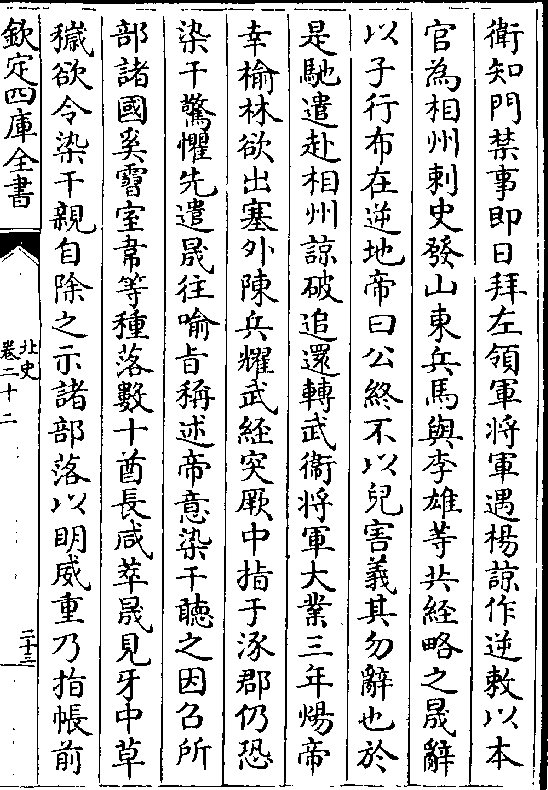 衛知門禁事即日拜左領軍將軍遇楊諒作逆敕以本
官為相州刺史發山東兵馬與李雄等共經略之晟辭
以子行布在逆地帝曰公終不以兒害義其勿辭也於
是馳遣赴相州諒破追還轉武衛將軍大業三年煬帝
幸榆林欲出塞外陳兵耀武經突厥中指于涿郡仍恐
染干驚懼先遣晟往喻旨稱述帝意染干聽之因召所
部諸國奚霫室韋等種落數十酋長咸萃晟見牙中草
穢欲令染干親自除之示諸部落以明威重乃指帳前
欽定四庫全書
北史
卷二十二
二十三